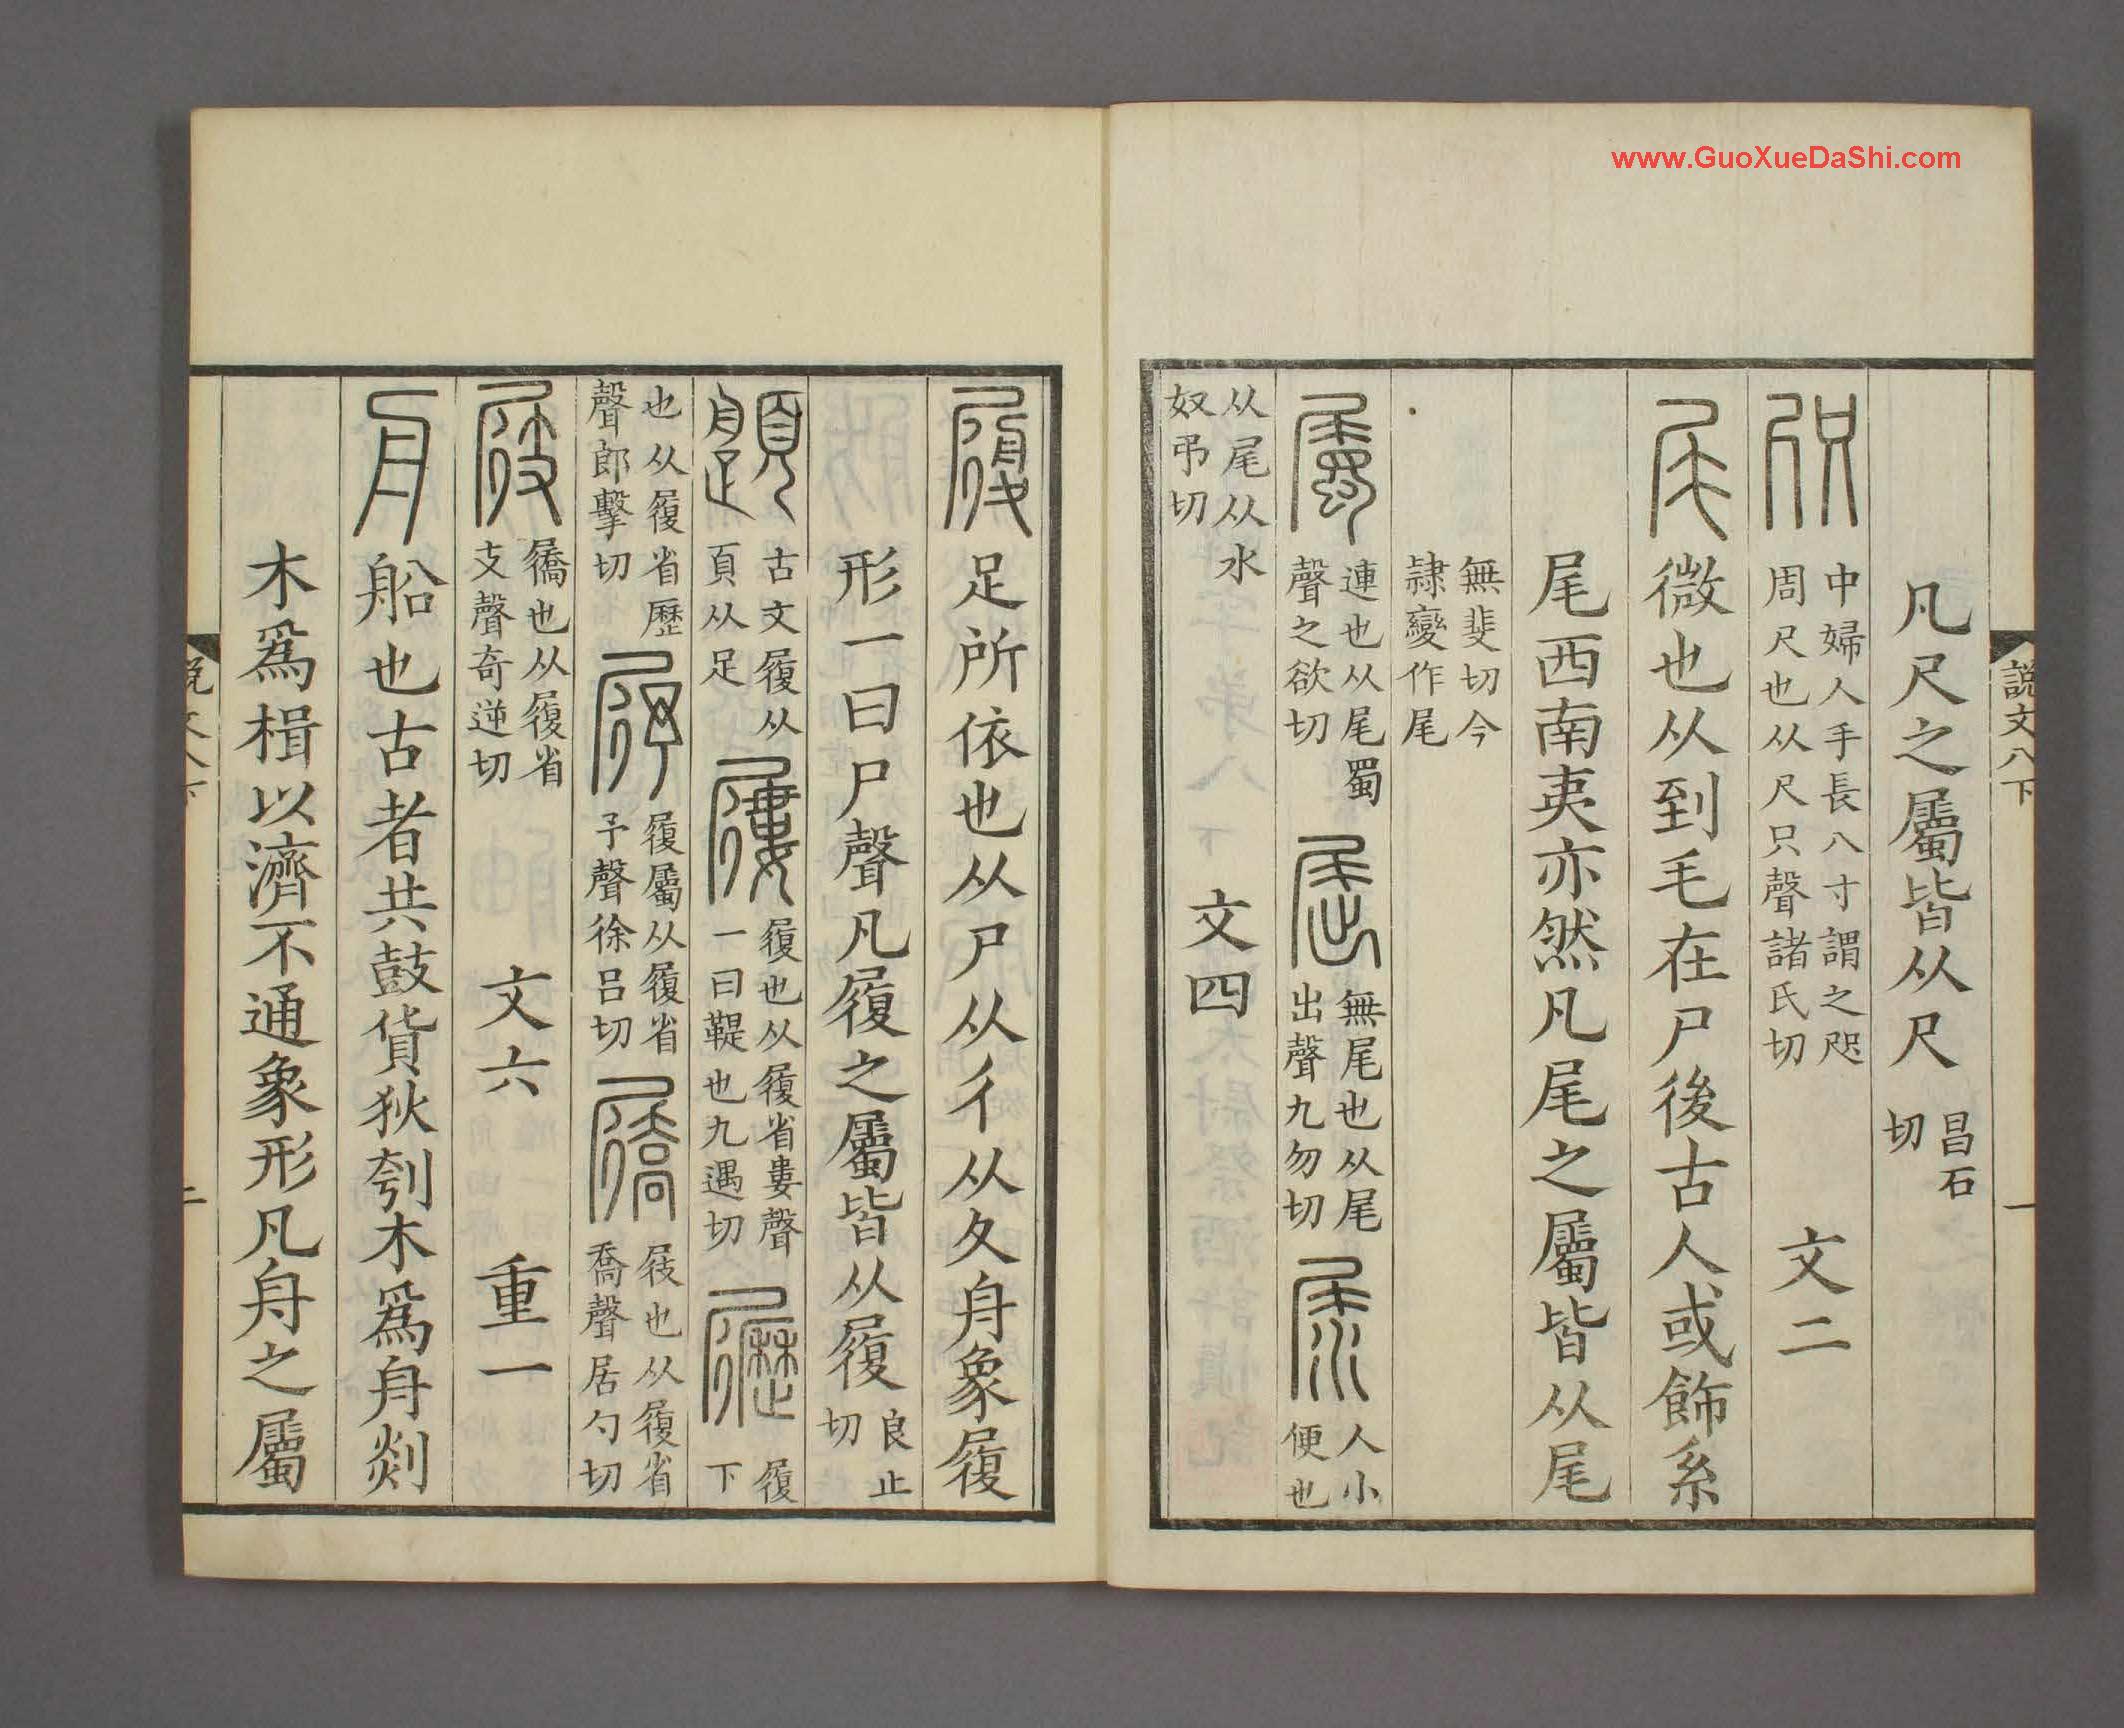 www.GuoXueDaShi.com
說文八下 一
凡尺之屬皆从尺 昌石切
咫 中婦人手長八寸謂之咫周尺也从尺只聲諸氏切 文二
尾 微也从到毛在尸後古人或飾系
尾西南夷亦然凡尾之屬皆从尾
無斐切今隷變作尾
屬 連也从尾蜀聲之欲切 屈 無尾也从尾出聲九勿切 尿 人小便也
从尾从水奴弔切 文四
履 足所依也从尸从彳从夊舟象履
形一曰尸聲凡履之屬皆从履 良止切
古文履从頁从足 屨 履也从履省婁聲一曰鞮也九遇切 履下
也从履省歷聲郎擊切 履屬从履省予聲徐吕切 屩 屐也从履省喬聲居勺切
屐 屩也从履省支聲奇逆切 文六 重一
舟 船也古者共鼓貨狄刳木爲舟剡
木爲楫以濟不通象形凡舟之屬
說文八下 二